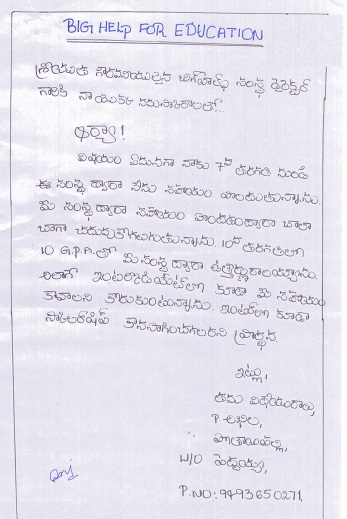 BIG HELP FOR EDUCATION
శ్రీయుత గౌరవనీయులైన బిగ్‌హెల్ప్ సంస్థ డైరెక్టర్
గారికి నా యొక్క నమస్కారాలతో...
ఆర్యా!
విషయం ఏమనగా నాకు 7వ తరగతి నుండి
ఈ సంస్థ ద్వారా నేను సహాయం పొందుతున్నాను.
మీ సంస్థ ద్వారా సహాయం పొందడంద్వారా చాలా
బాగా చదువుకోగలుగుతున్నాను. 10వ తరగతిలో
10 G.P.A.తో మీ సంస్థ ద్వారా ఉత్తీర్ణురాలయ్యాను.
అలాగే ఇంటర్మీడియెట్‌లో కూడా మీ సహాయం
కావాలని కోరుకుంటున్నాను. ఇంటర్‌లో కూడా
స్కాలర్‌షిప్ కొనసాగించగలరని ప్రార్థన.
ఇట్లు,
తమ విధేయురాలు,
P. అఖిల,
పోతాయిపల్లి,
W/O పెద్దయ్య,
P.NO: 9493650271.